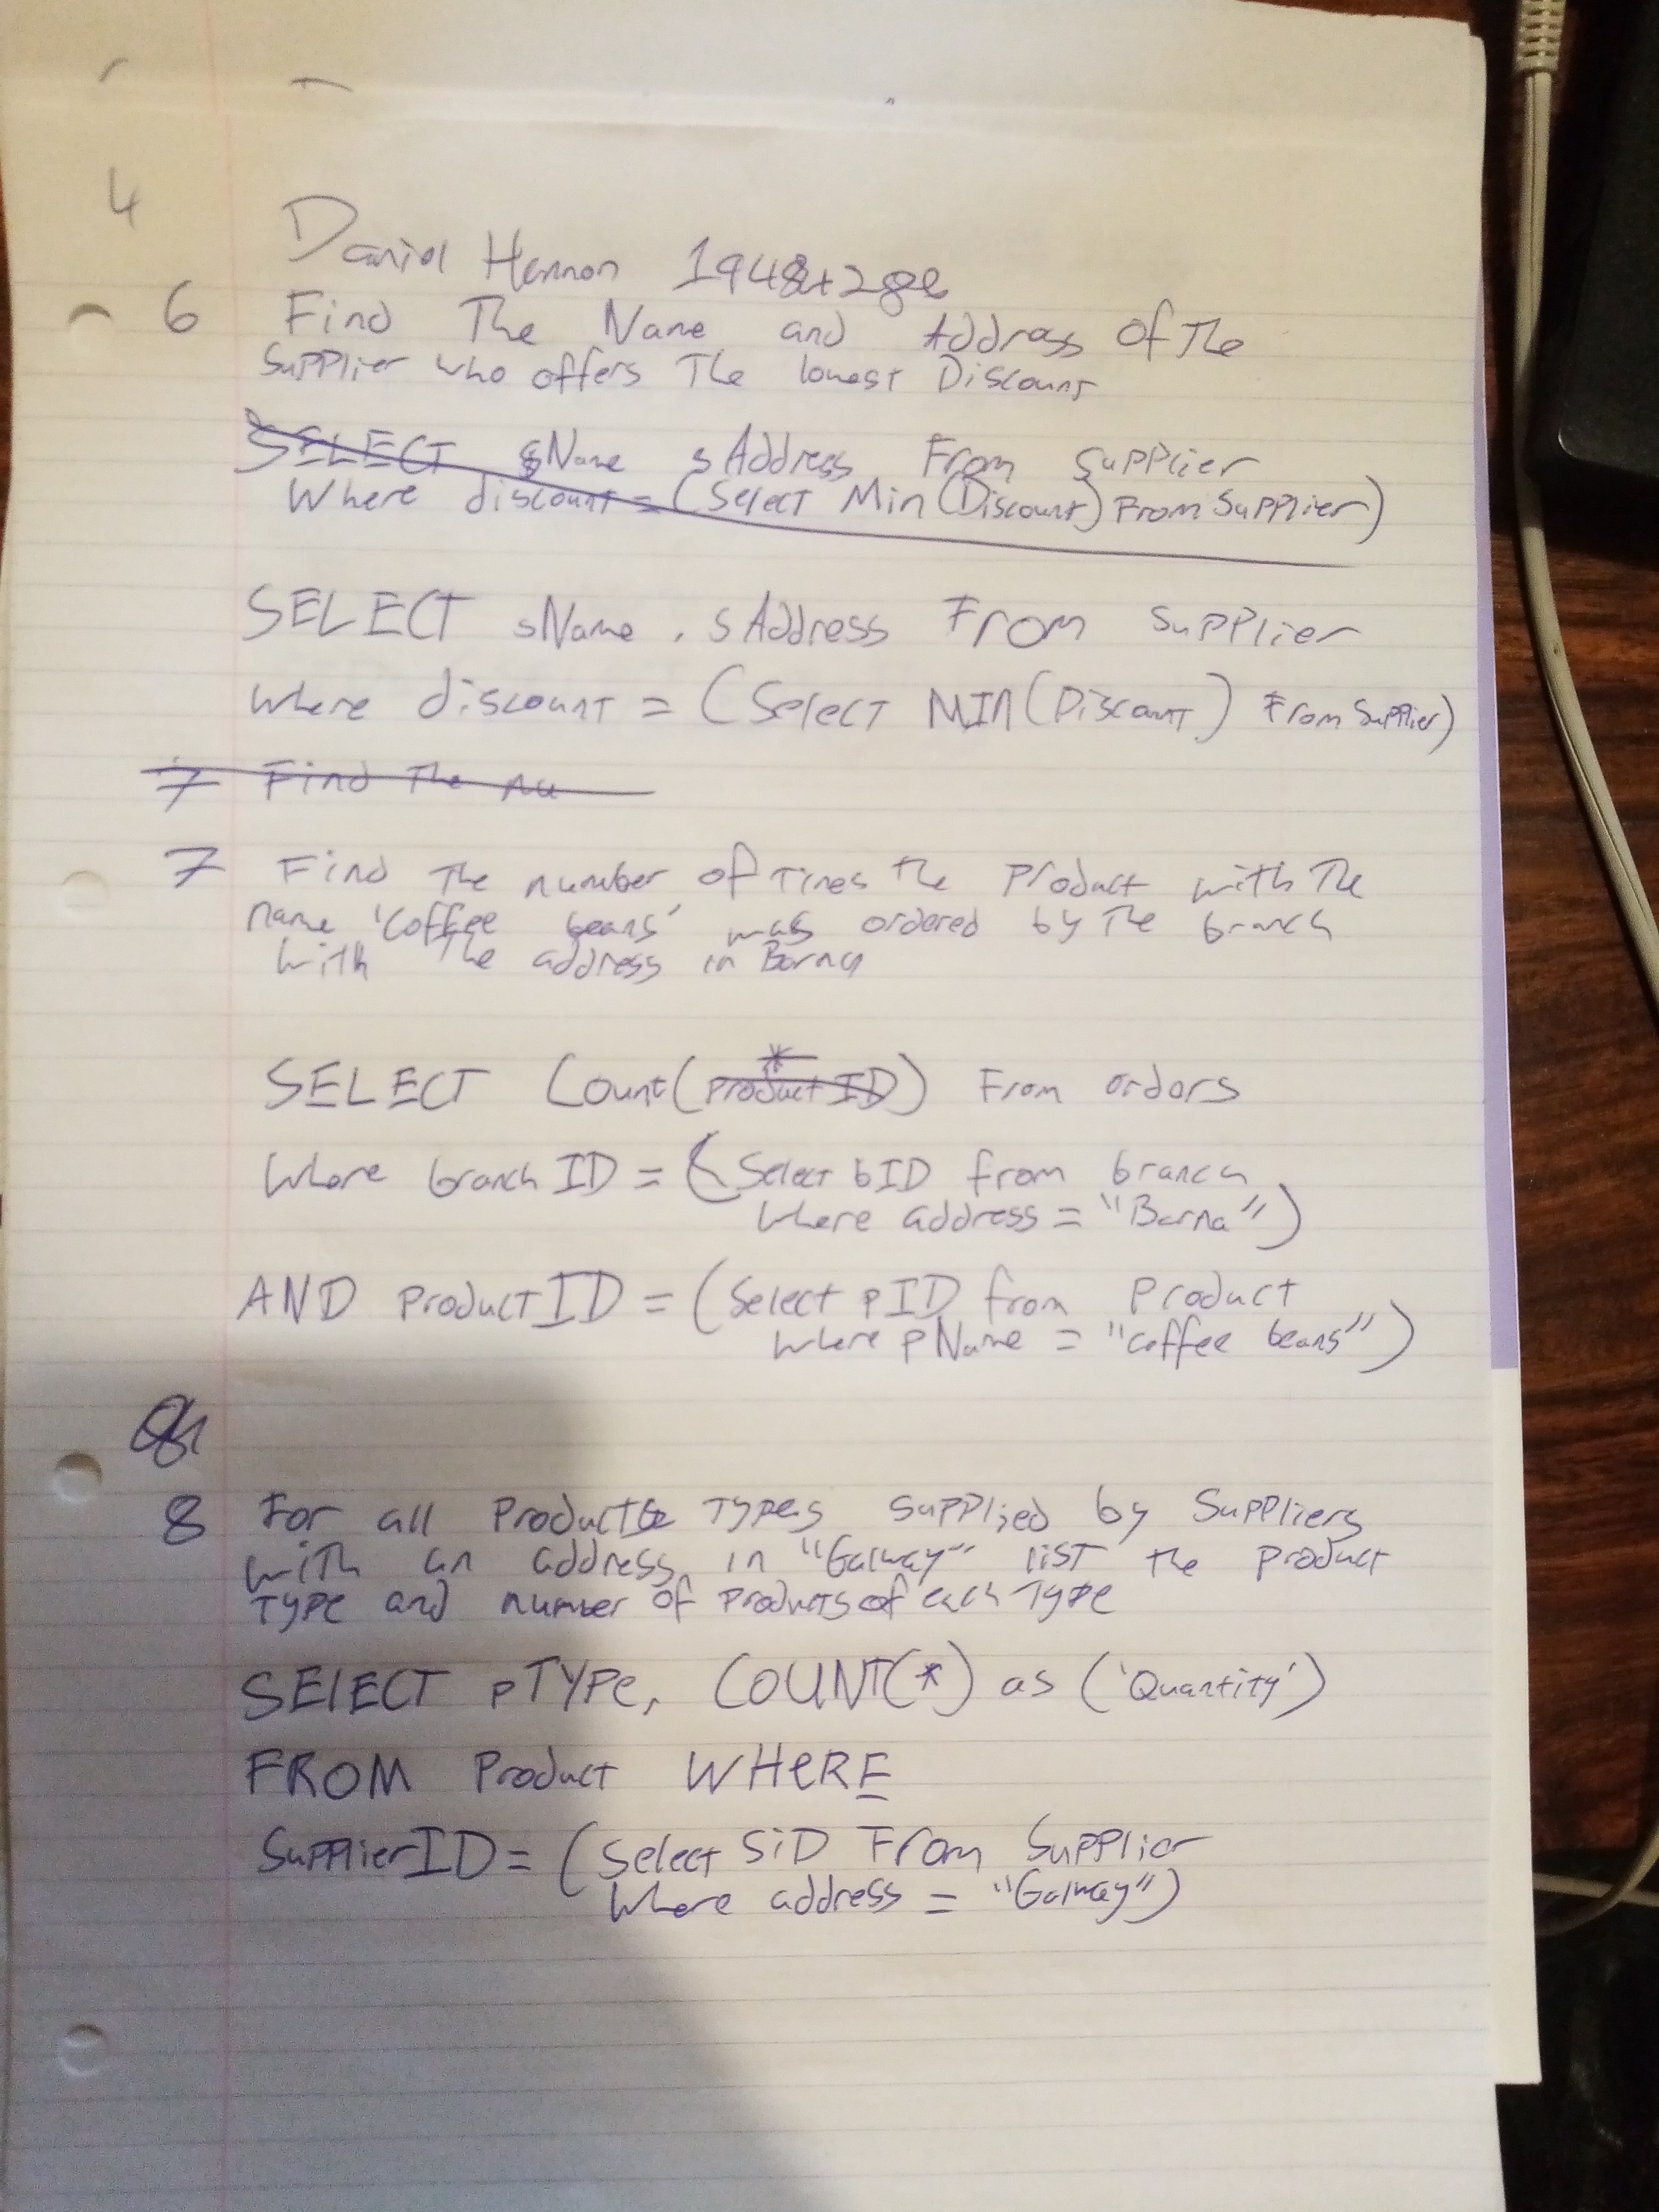 4
Daniel Hennon
6 Find The Name and Address of The
Supplier who offers The lowest Discount
SELECT sName sAddress From Supplier
Where discount = (Select Min(Discount) From Supplier)
SELECT sName, sAddress From Supplier
Where discount = (Select MIN(Discount) From Supplier)
7 Find The nu
7 Find The number of Times the Product with The
name 'Coffee beans' was ordered by The branch
with The address in Barna
*
SELECT Count(product ID) From orders
Where branch ID = (Select bID from branch
Where address = "Barna")
AND Product ID = (Select pID from Product
Where pName = "coffee beans")
8 For all Product Types Supplied by Suppliers
with an address in "Galway" list the product
Type and number of products of each Type
SELECT pTYPe, COUNT(*) as ('Quantity')
FROM Product WHeRE
SupplierID = (Select SiD From Supplier
Where address = "Galway")